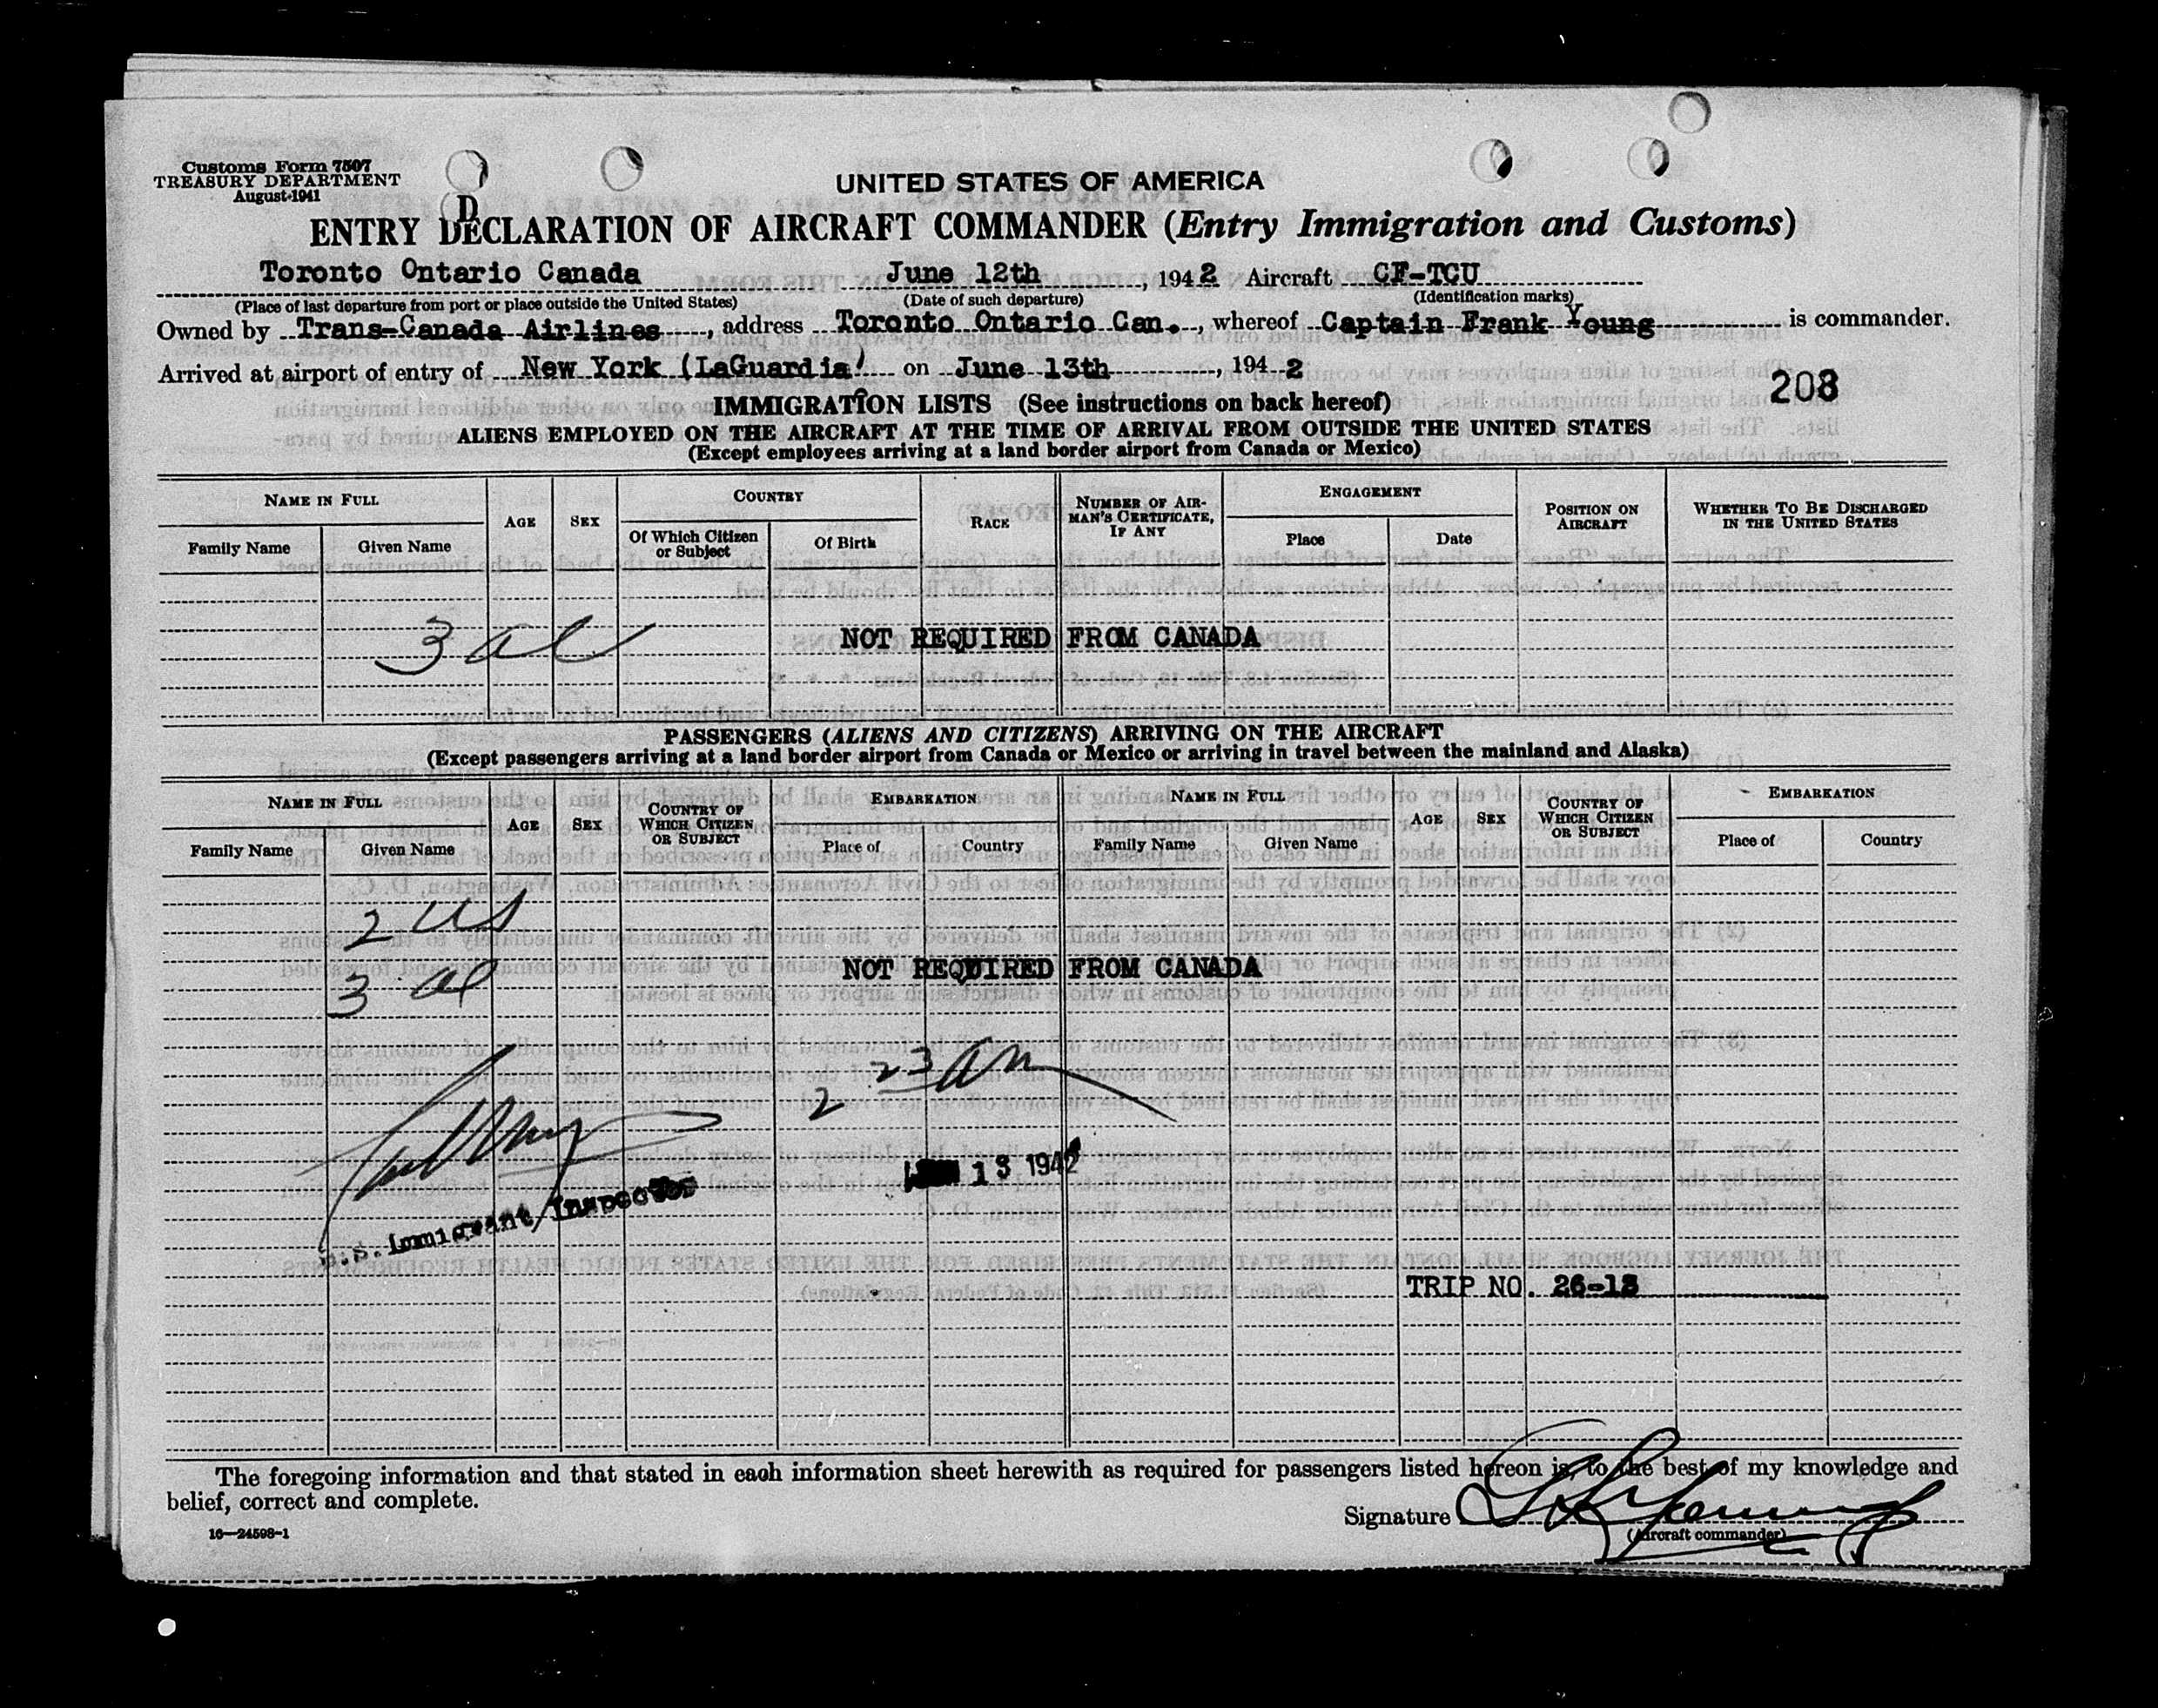 Customs Form 7507
TREASURY DEPARTMENT
August 1941
UNITED STATES OF AMERICA
ENTRY DECLARATION OF AIRCRAFT COMMANDER (Entry Immigration and Customs)
Toronto Ontario Canada June 12th, 1942 Aircraft CF-TCU
(Place of last departure from port or place outside the United States) (Date of such departure) (Identification marks)
Owned by Trans-Canada Airlines, address Toronto Ontario Can., whereof Captain Frank Young is commander.
Arrived at airport of entry of New York (LaGuardia) on June 13th, 1942
208
IMMIGRATION LISTS (See instructions on back hereof)
ALIENS EMPLOYED ON THE AIRCRAFT AT THE TIME OF ARRIVAL FROM OUTSIDE THE UNITED STATES
(Except employees arriving at a land border airport from Canada or Mexico)
NAME IN FULL AGE SEX COUNTRY RACE NUMBER OF AIRMAN'S CERTIFICATE, IF ANY ENGAGEMENT POSITION ON AIRCRAFT WHETHER TO BE DISCHARGED IN THE UNITED STATES
Family Name Given Name Of Which Citizen or Subject Of Birth Place Date
3 al NOT REQUIRED FROM CANADA
PASSENGERS (ALIENS AND CITIZENS) ARRIVING ON THE AIRCRAFT
(Except passengers arriving at a land border airport from Canada or Mexico or arriving in travel between the mainland and Alaska)
NAME IN FULL AGE SEX COUNTRY OF WHICH CITIZEN OR SUBJECT EMBARKATION NAME IN FULL AGE SEX COUNTRY OF WHICH CITIZEN OR SUBJECT EMBARKATION
Family Name Given Name Place of Country Family Name Given Name Place of Country
2 US
3 al NOT REQUIRED FROM CANADA
2 23 am
13 1942
U.S. Immigrant Inspector
TRIP NO. 26-13
The foregoing information and that stated in each information sheet herewith as required for passengers listed hereon is, to the best of my knowledge and
belief, correct and complete.
Signature
(Aircraft commander)
16—24598-1